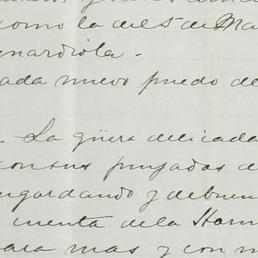 como la del Sr de Ma
nardiola.
ada nuevo puedo de
. La güera delicada
con sus punzadas d
aguardando y de buen
cuenta de la Horm
para mas y con m